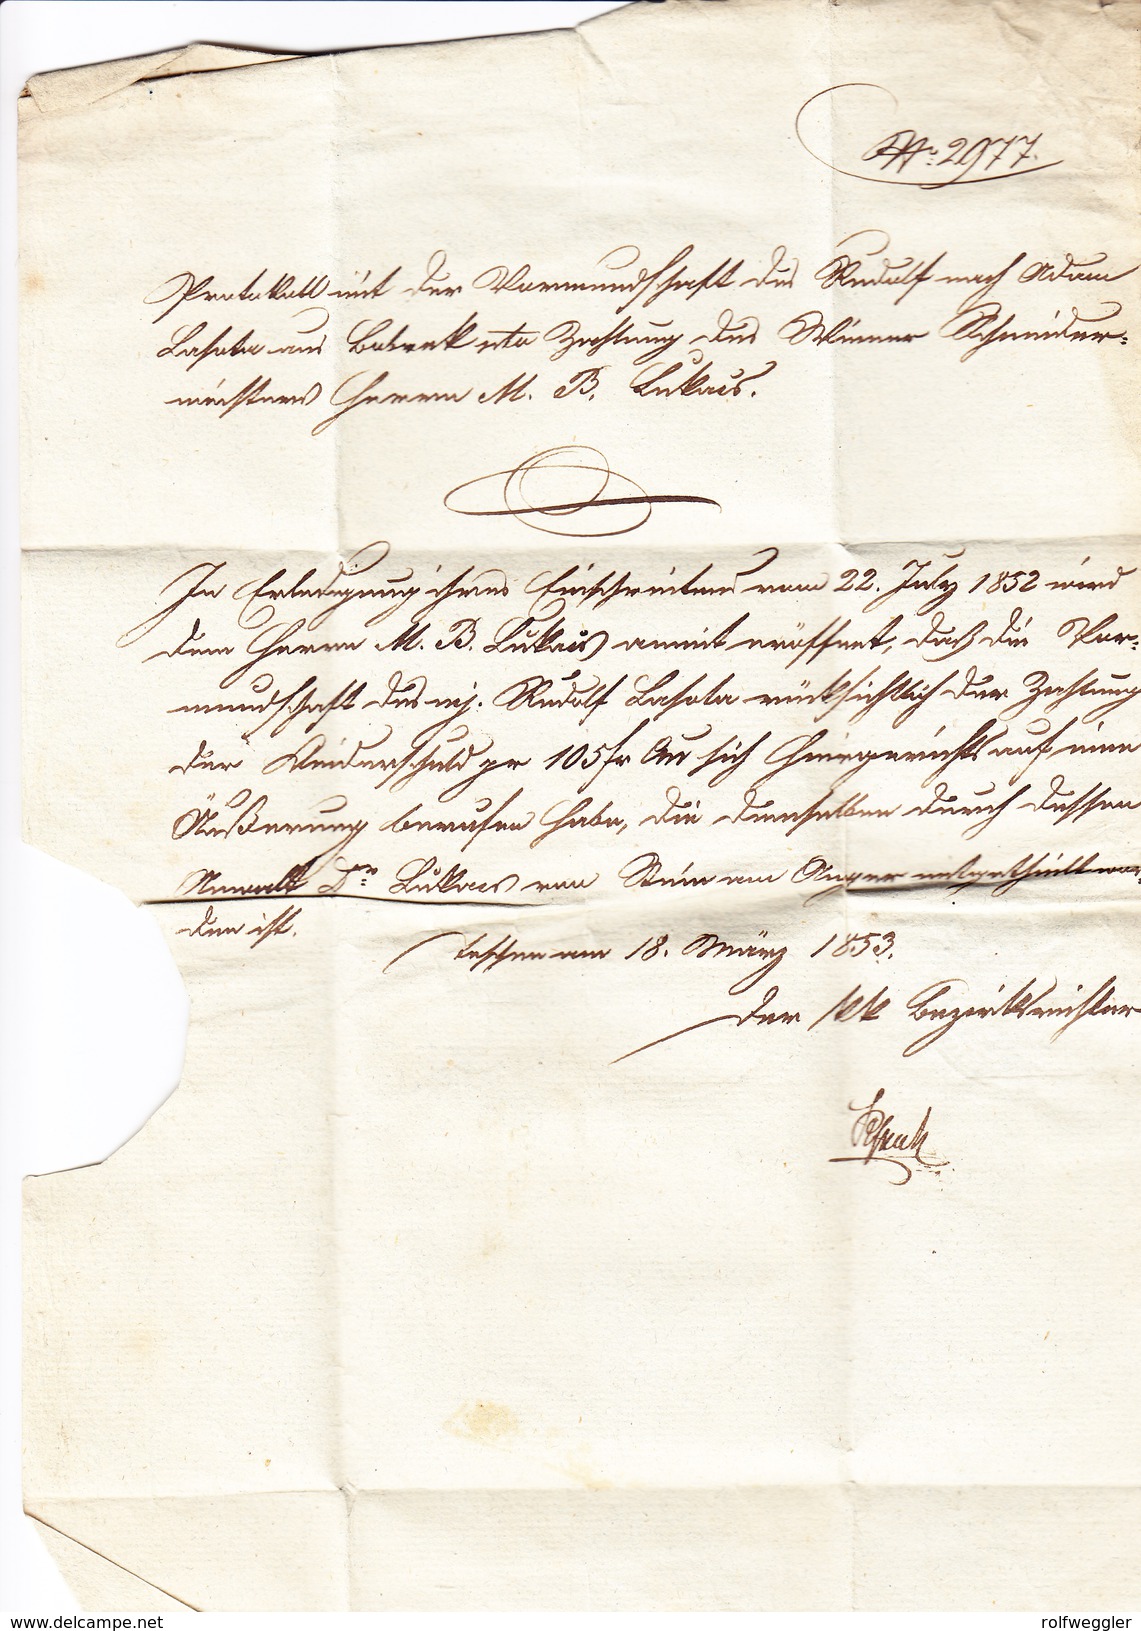 No 2977.
Protokoll mit der Vormundschaft des Rudolf nach Adam
Lasota aus Bobrek cto Zahlung des Wiener Schneider=
meisters Herrn M. B. Lukács.
In Erledigung ihres Einschreitens vom 22. July 1852 wird
dem Herrn M. B. Lukács anmit eröffnet, daß die Vor=
mundschaft des mj. Rudolf Lasota rücksichtlich der Zahlung
der Kleiderschuld pr 105 fr CM sich hiergerichts auf eine
Äußerung berufen habe, die demselben durch dessen
Anwalt Dr. Lukacs von Stein am Anger mitgetheilt wor=
den ist.
Teschen am 18. März 1853.
Der kk Bezirksrichter
delcampe.net
rolfweggler